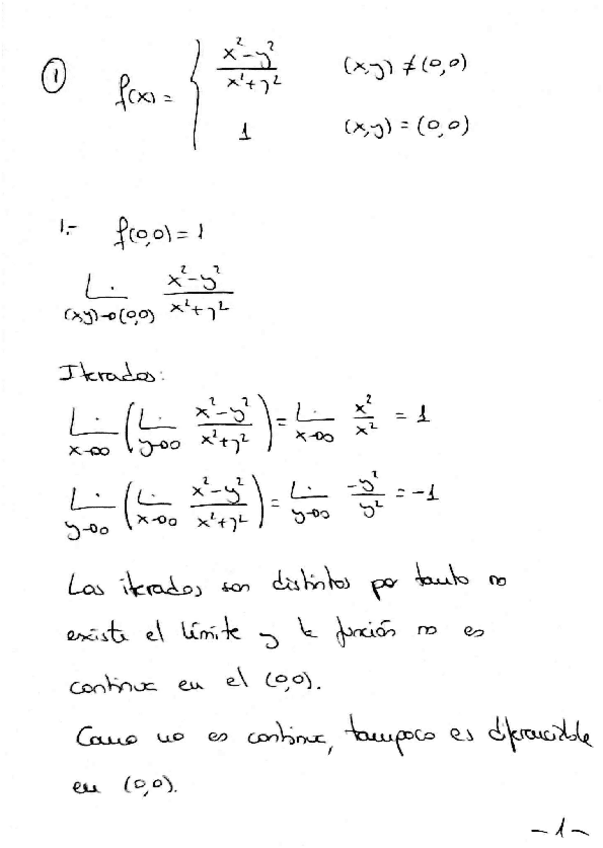 ① f(x) = { (x²-y²)/(x²+y²) (x,y) ≠ (0,0)
1 (x,y) = (0,0)
1.- f(0,0) = 1
L. (x,y)→(0,0) (x²-y²)/(x²+y²)
Iterados:
L. x→0 ( L. y→0 (x²-y²)/(x²+y²) ) = L. x→0 x²/x² = 1
L. y→0 ( L. x→0 (x²-y²)/(x²+y²) ) = L. y→0 -y²/y² = -1
Los iterados son distintos por tanto no
existe el límite y la función no es
continua en el (0,0).
Como no es continua, tampoco es diferenciable
en (0,0).
-1-